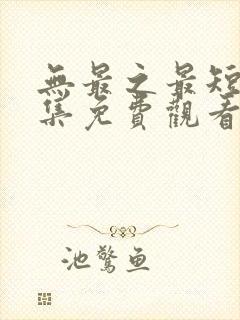 無最之最短
集免費觀看
池驚魚